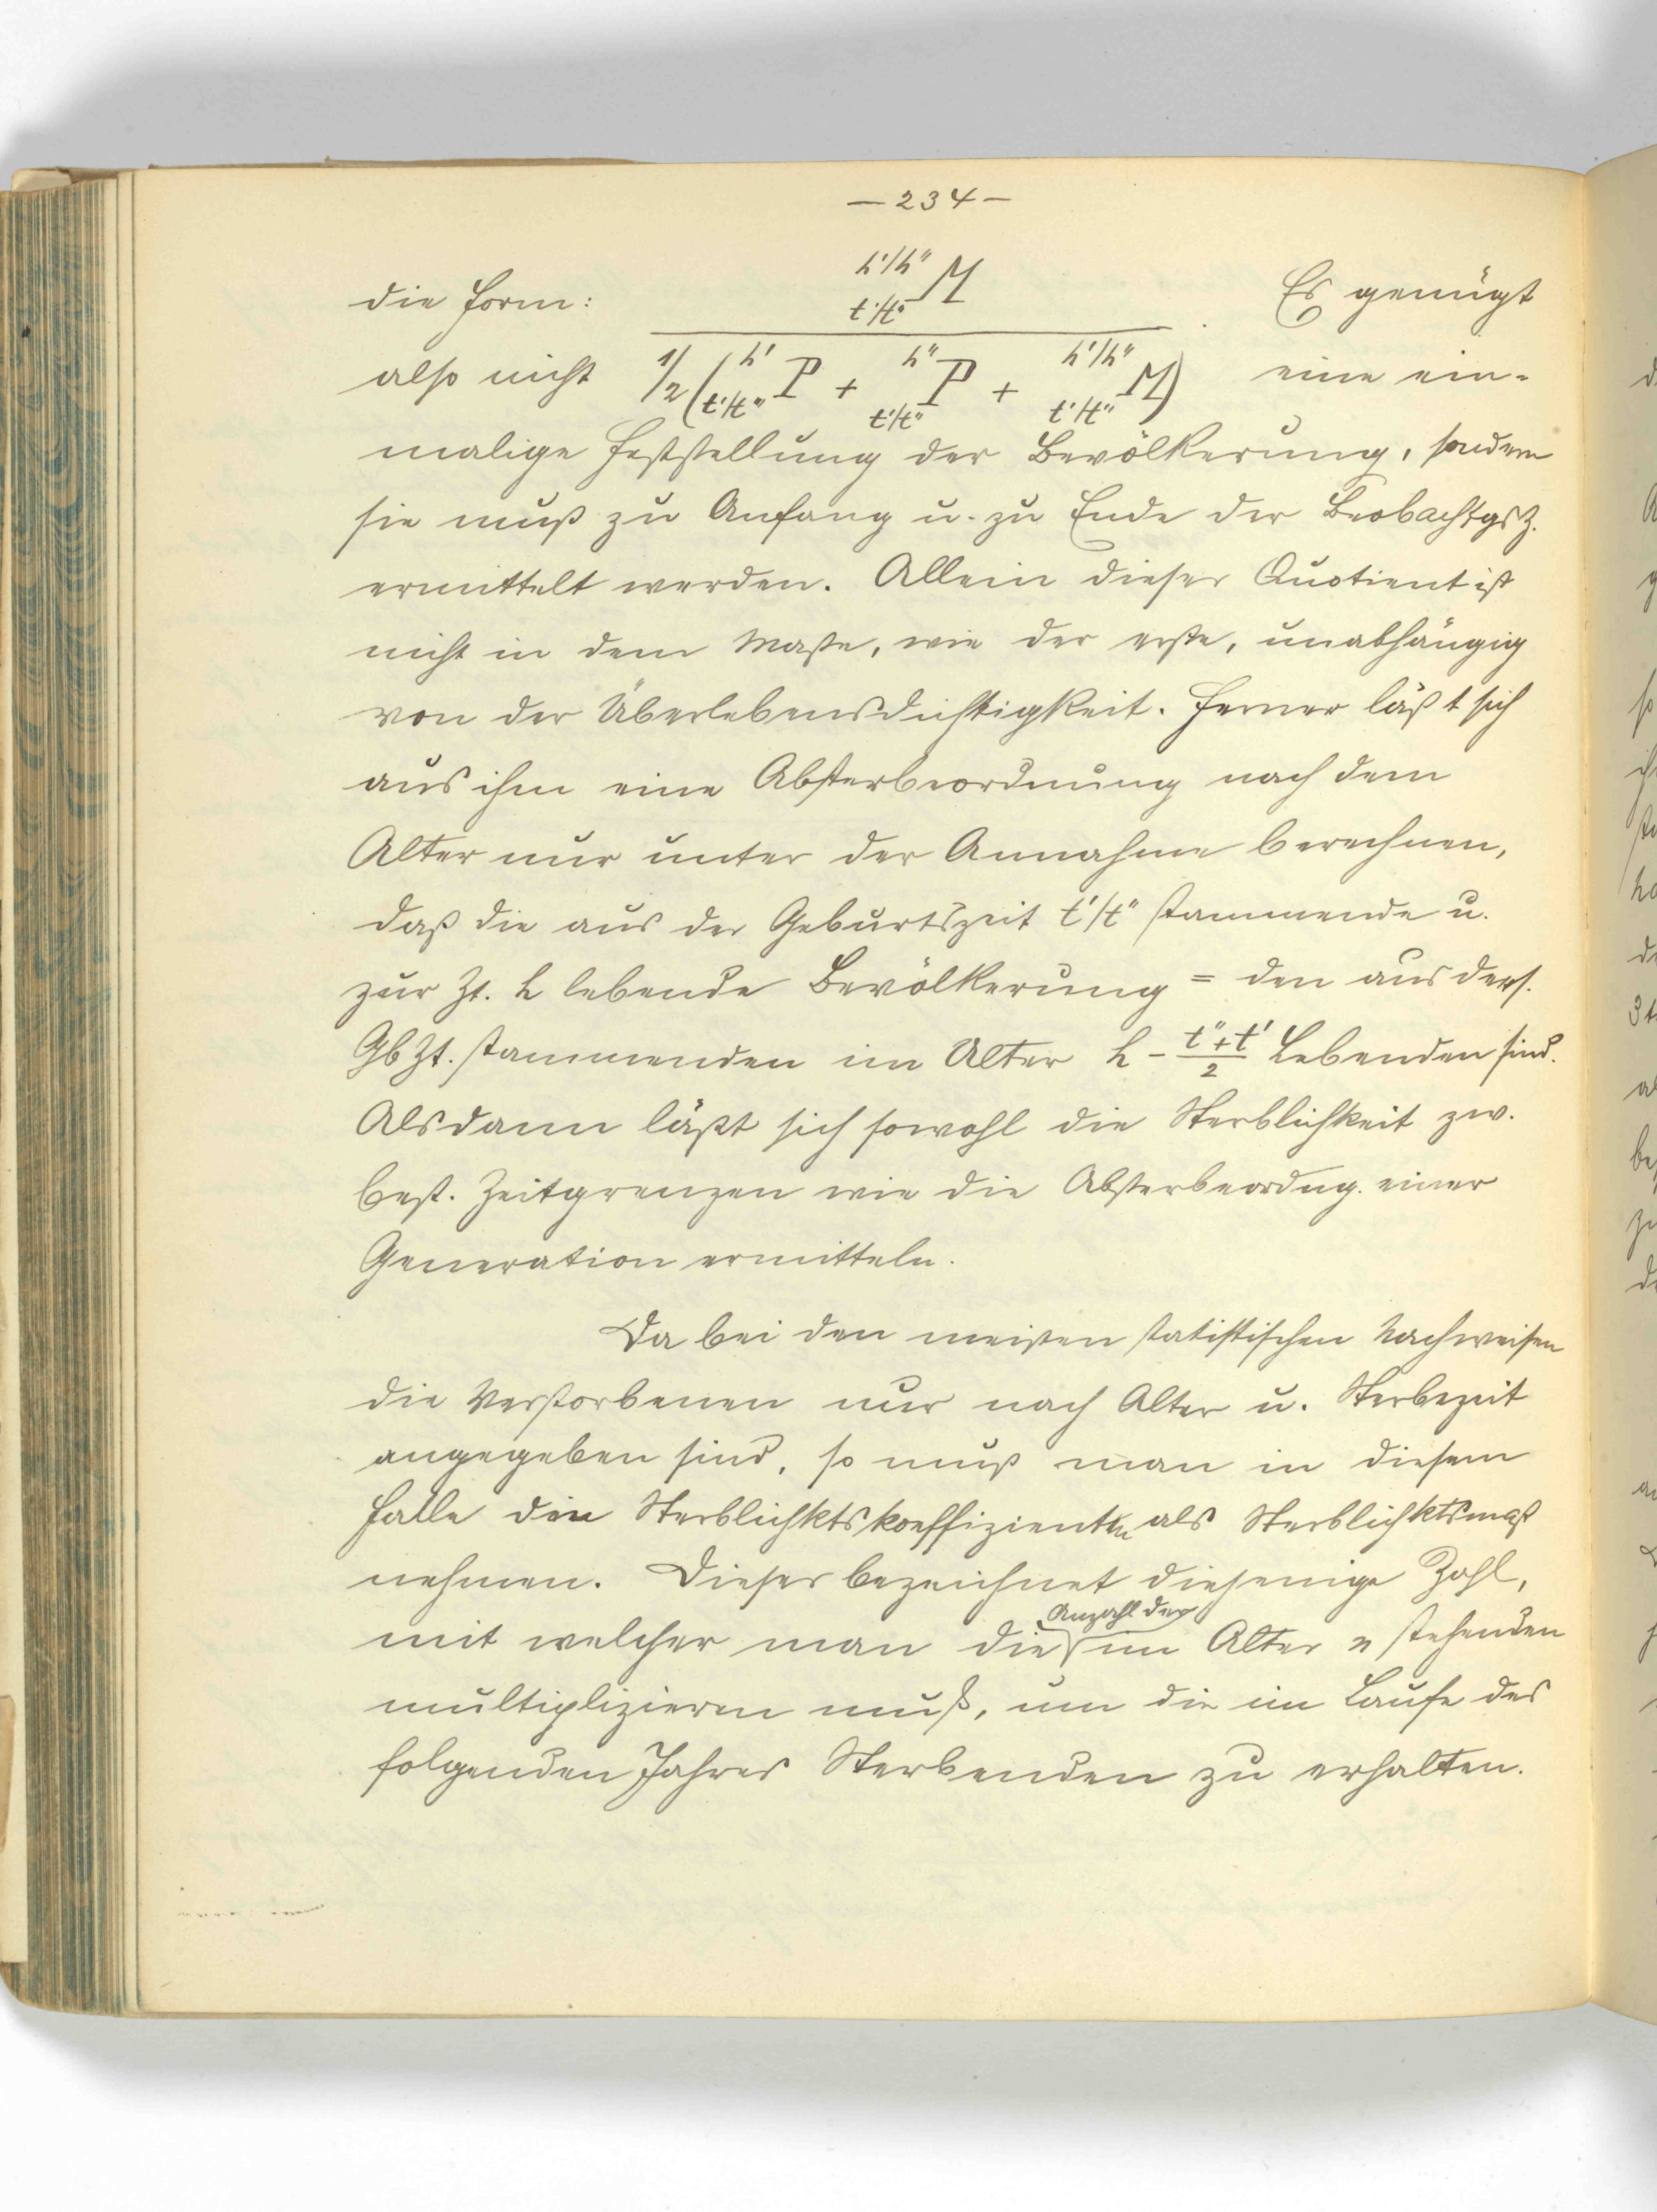 — 234 —
die Form: h'/h'' M t'/t'' Es genügt
also nicht 1/2 (h' P t'/t'' + h'' P t'/t'' + h'/h'' M t'/t'') eine ein-
malige Feststellung der Bevölkerung, sondern
sie muß zu Anfang u. zu Ende der Beobachtgsz.
ermittelt werden. Allein dieser Quotient ist
nicht in dem Maße, wie der erste, unabhängig
von der Überlebensdichtigkeit. Ferner läßt sich
aus ihm eine Absterbeordnung nach dem
Alter nur unter der Annahme berechnen,
daß die aus der Geburtszeit t'/t'' stammende u.
zur Zt. h lebende Bevölkerung = den aus ders.
Gbzt. stammenden im Alter h - (t''+t')/2 Lebenden sind.
Alsdann läßt sich sowohl die Sterblichkeit zw.
best. Zeitgrenzen wie die Absterbeordng. einer
Generation ermitteln.
Da bei den meisten statistischen Nachweisen
die Verstorbenen nur nach Alter u. Sterbezeit
angegeben sind, so muß man in diesem
Falle den Sterblichktskoeffizienten als Sterblichktsmaß
nehmen. Dieser bezeichnet diejenige Zahl,
mit welcher man die Anzahl der im Alter n stehenden
multiplizieren muß, um die im Laufe des
folgenden Jahres Sterbenden zu erhalten.